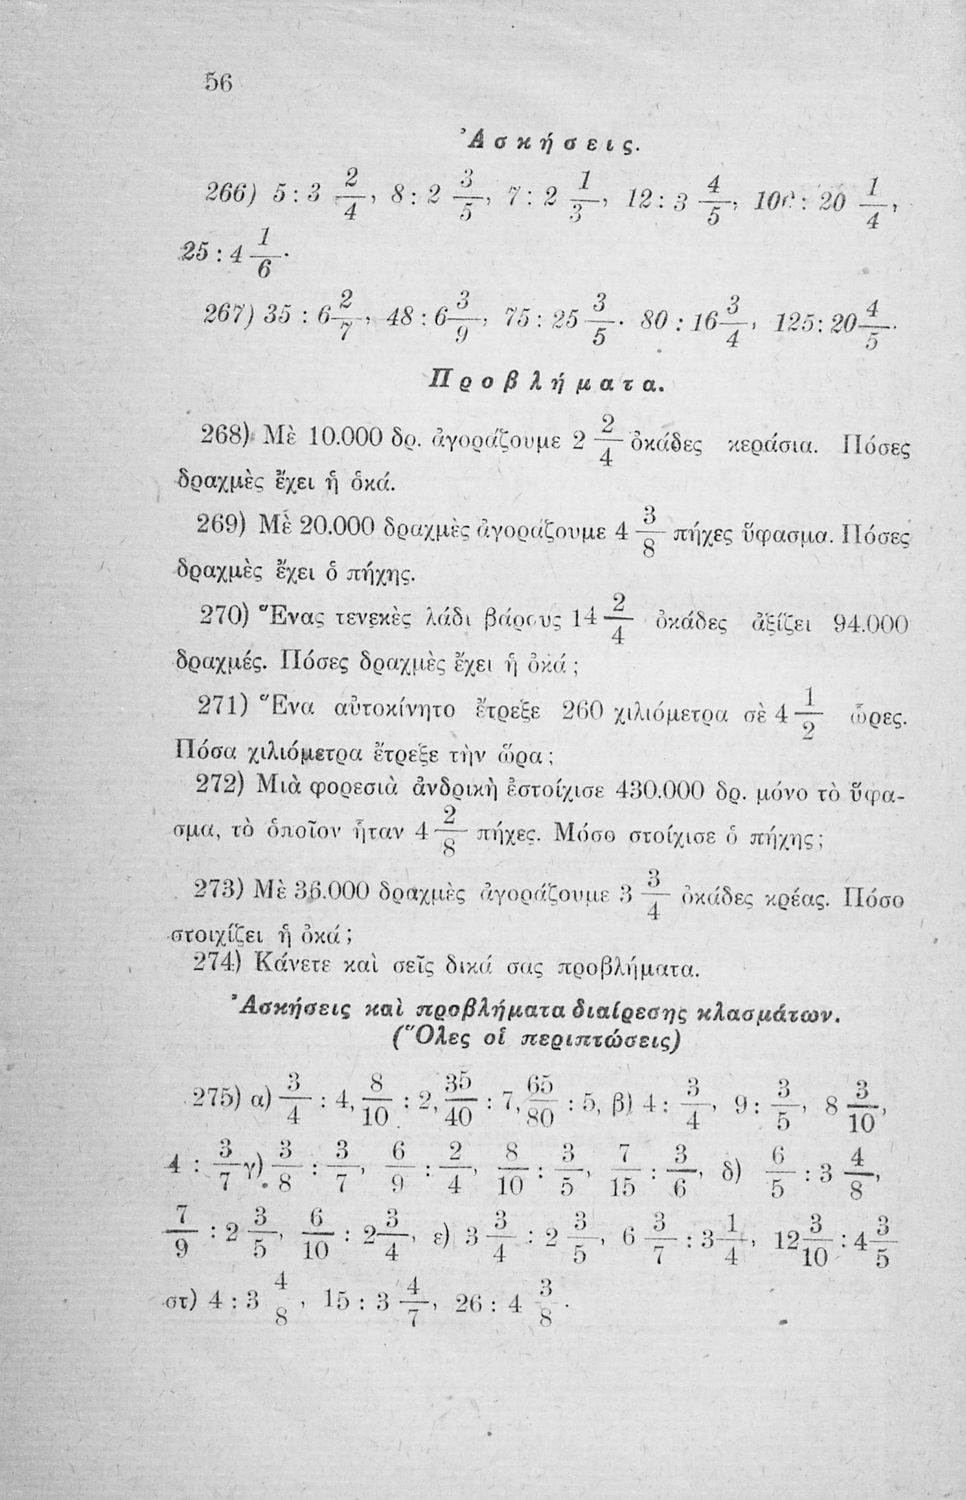 56
Ἀσκήσεις.
266) 5 : 3 2/4, 8 : 2 3/5, 7 : 2 1/3, 12 : 3 4/5, 100 : 20 1/4,
25 : 4 1/6.
267) 35 : 6 2/7, 48 : 6 3/9, 75 : 25 3/5. 80 : 16 3/4, 125 : 20 4/5.
Προβλήματα.
268) Μὲ 10.000 δρ. ἀγοράζουμε 2 2/4 ὀκάδες κεράσια. Πόσες
δραχμὲς ἔχει ἡ ὀκά.
269) Μὲ 20.000 δραχμὲς ἀγοράζουμε 4 3/8 πήχες ὕφασμα. Πόσες
δραχμὲς ἔχει ὁ πήχης.
270) Ἕνας τενεκὲς λάδι βάρους 14 2/4 ὀκάδες ἀξίζει 94.000
δραχμές. Πόσες δραχμὲς ἔχει ἡ ὀκά ;
271) Ἕνα αὐτοκίνητο ἔτρεξε 260 χιλιόμετρα σὲ 4 1/2 ὧρες.
Πόσα χιλιόμετρα ἔτρεξε τὴν ὥρα ;
272) Μιὰ φορεσιὰ ἀνδρικὴ ἐστοίχισε 430.000 δρ. μόνο τὸ ὕφα-
σμα, τὸ ὁποῖον ἦταν 4 2/8 πήχες. Μόσο στοίχισε ὁ πήχης ;
273) Μὲ 36.000 δραχμὲς ἀγοράζουμε 3 3/4 ὀκάδες κρέας. Πόσο
στοιχίζει ἡ ὀκά ;
274) Κάνετε καὶ σεῖς δικά σας προβλήματα.
Ἀσκήσεις καὶ προβλήματα διαίρεσης κλασμάτων.
(Ὅλες οἱ περιπτώσεις)
275) α) 3/4 : 4, 8/10 : 2, 35/40 : 7, 65/80 : 5, β) 4 : 3/4, 9 : 3/5, 8 3/10,
4 : 3/7 γ) 3/8 : 3/7, 6/9 : 2/4, 8/10 : 3/5, 7/15 : 3/6, δ) 6/5 : 3 4/8,
7/9 : 2 3/5, 6/10 : 2 3/4, ε) 3 3/4 : 2 3/5, 6 3/7 : 3 1/4, 12 3/10 : 4 3/5
στ) 4 : 3 4/8, 15 : 3 4/7, 26 : 4 3/8.